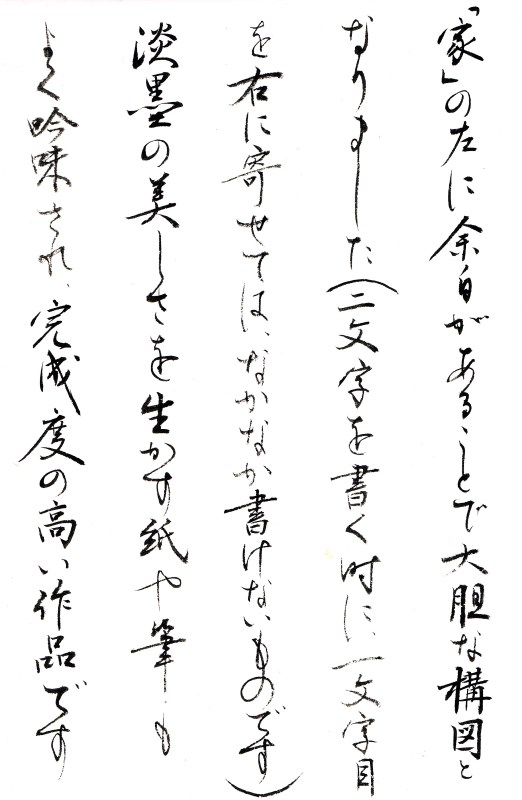 「家」の左に余白があることで大胆な構図と
なりました（二文字を書く時に、一文字目
を右に寄せては、なかなか書けないものです）
淡墨の美しさを生かす紙や筆も
よく吟味され、完成度の高い作品です